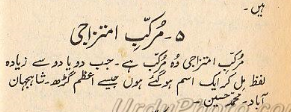 ہیں۔
۵۔ مرکّب امتزاجی
مرکّب امتزاجی وُہ مرکّب ہے۔ جب دو یا دو سے زیادہ
لفظ مل کر ایک اسم ہو گئے ہوں جیسے اعظم گڑھ۔ شاہجہان
آباد۔ محمد حسین۔